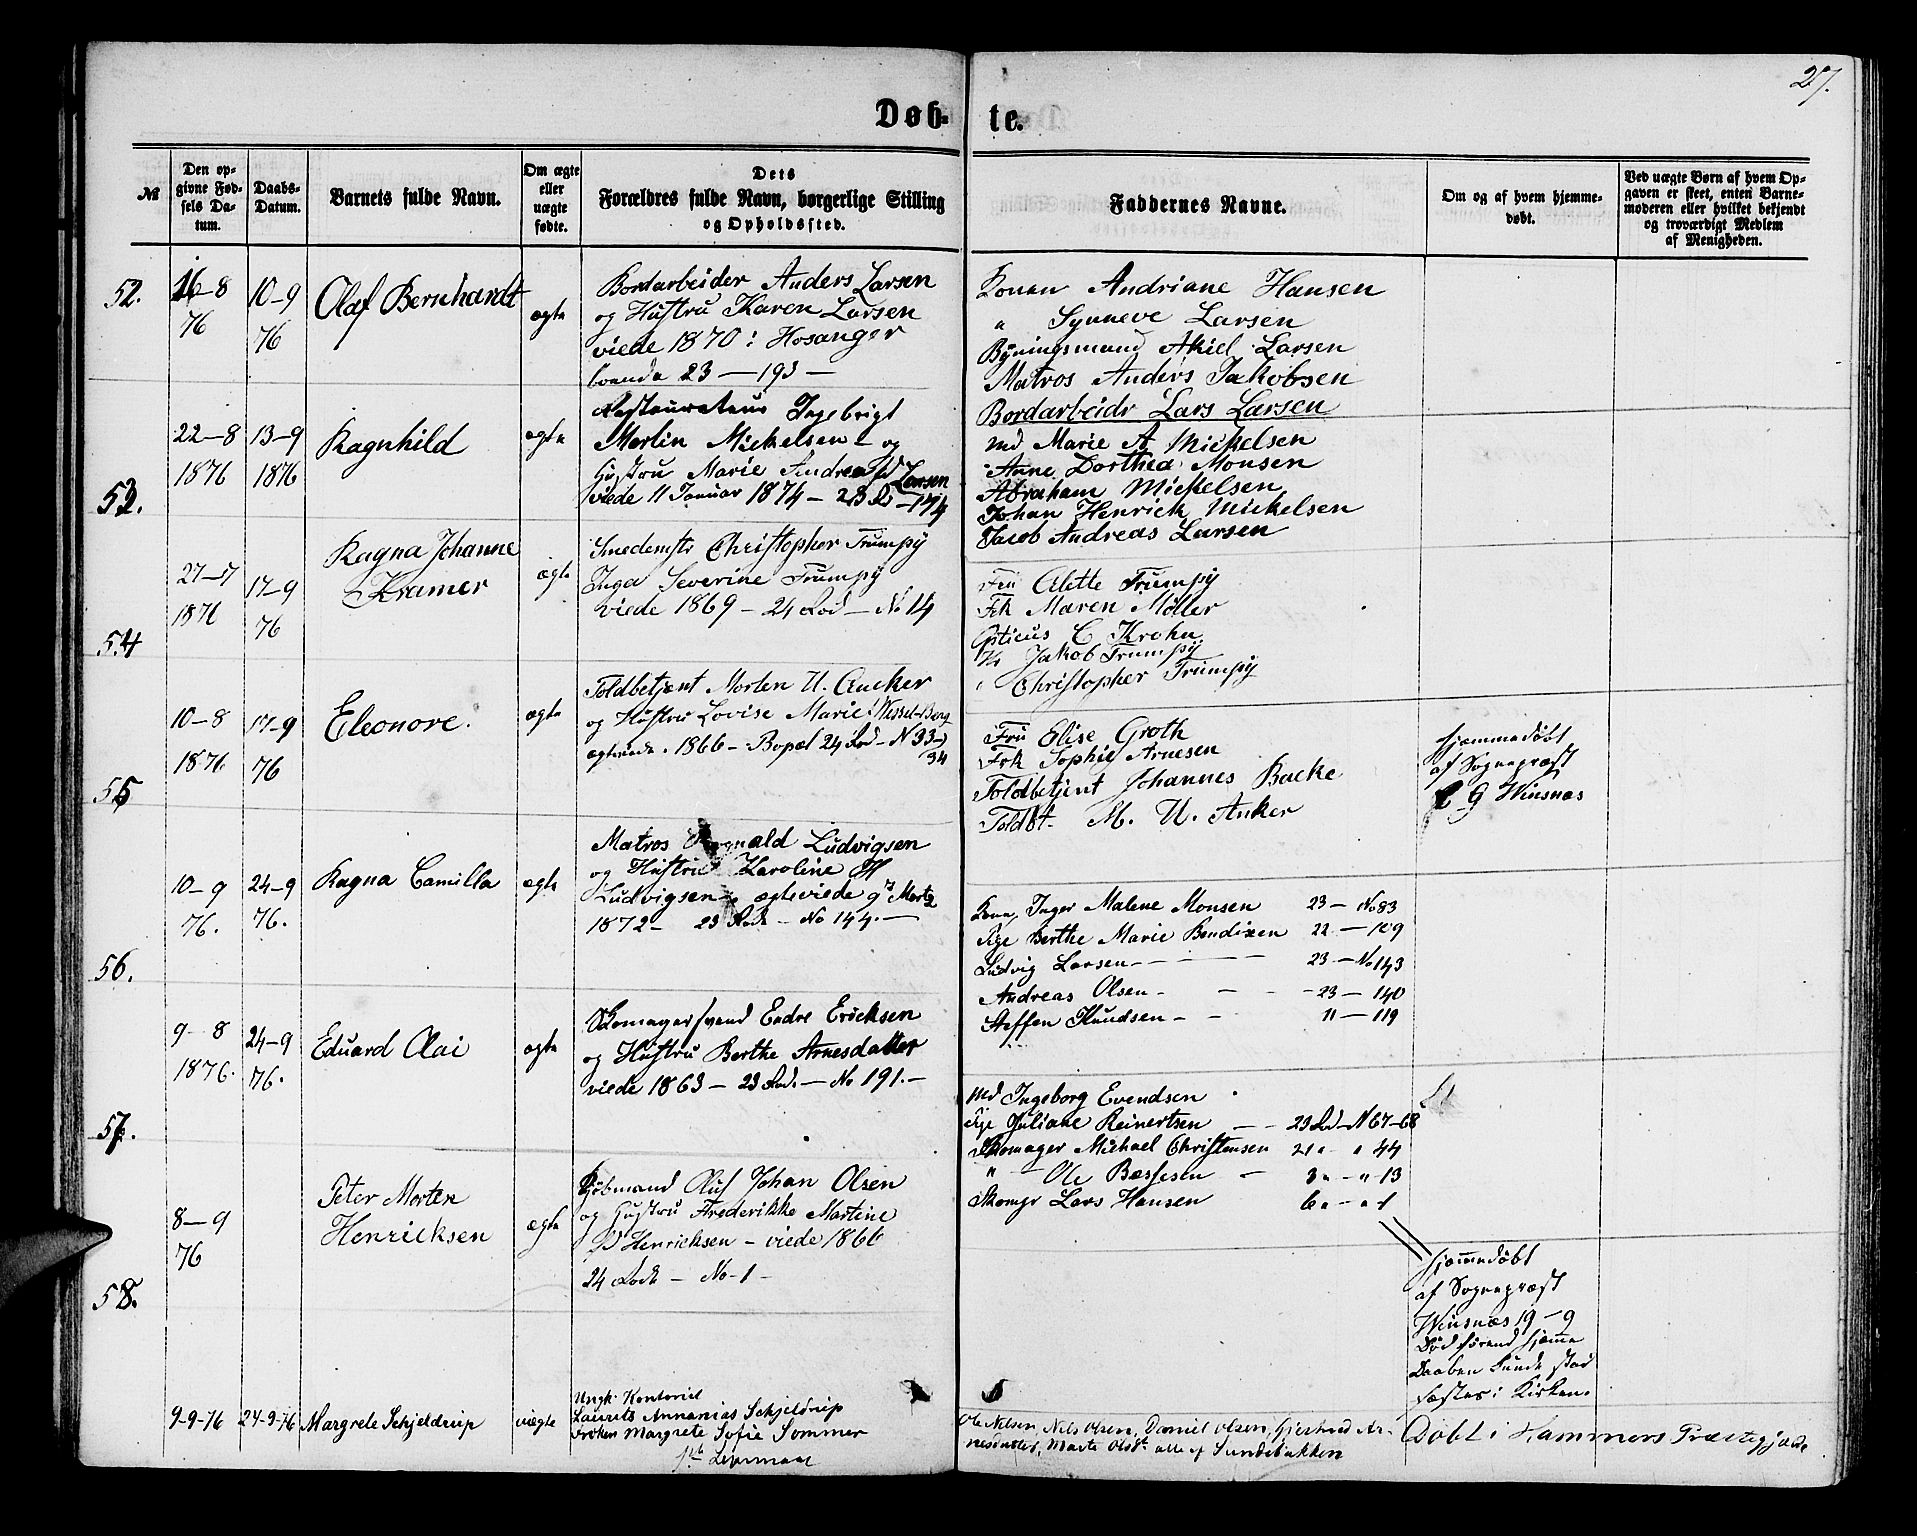 27.
Døb-
te.
№
Den op-
givne Fød-
sels Da-
tum.
Daabs-
Datum.
Barnets fulde Navn.
Om ægte
eller
uægte
fødte.
Dets
Forældres fulde Navn, borgerlige Stilling
og Opholdssted.
Faddernes Navne.
Om og af hvem hjemme-
døbt.
Ved uægte Børn af hvem Op-
gaven er skeet, enten Barne-
moderen eller hvilket bekjendt
og troværdigt Medlem
af Menigheden.
52.
16-8
76
10-9
76
Olaf Bernhardt
ægte
Bordarbeider Anders Larsen
og Hustru Karen Larsen
viede 1870 i Hosanger
boende 23 — 193 —
Konen Andriane Hansen
" Synneve Larsen
Bÿningsmand Akiel Larsen
Matros Anders Jakobsen
Bordarbeidr Lars Larsen
53.
22-8
1876
13-9
1876
Ragnhild
ægte
Restaurateur Ingebrigt
Martin Mickelsen - og
Hustru Marie Andrea Larsen
viede 11 Januar 1874 - 23 Rd - 174
Md Marie A Mickelsen
Anne Dorthea Monsen
Abraham Mickelsen
Johan Henrick Mickelsen
Jacob Andreas Larsen
54
27-7
1876
17-9
76
Ragna Johanne
Kramer
ægte
Smedemstr Christopher Trumpÿ
Inga Severine Trumpÿ
viede 1869 - 24 Rod - No 14
Fru Alette Trumpÿ
Frk Maren Møller
Opticus C Krohn
Hr Jakob Trumpÿ
" Christopher Trumpÿ
55
10-8
1876
17-9
76
Eleonore.
ægte
Toldbetjent Morten U. Ancker
og Hustru Lovise Marie Wessel-Berg
ægteviede 1866 - Bopæl 24 Rod - N 33-
34
Fru Elise Groth
Frk Sophie Arnesen
Toldbetjent Johannes Backe
Toldbt. M. U. Anker
Hjemmedøbt
af Sognepræst
G Winsnæs
56.
10-9
76.
24-9
76.
Ragna Camilla
ægte
Matros Ludvigsen
og Hustru Karoline H
Ludvigsen, ægteviede 9de Marts
1872 - 23 Rode - No 144. -
Kone, Inger Malene Monsen 23 - No 83
Pige Berthe Marie Bendixen 22 - 109
Ludvig Larsen - - - - - 23 - No 143
Andreas Olsen - - - - 23 - 140
Steffen Knudsen - - 11 - 119
57.
9-8
1876.
24-9
76.
Eduard Olai
ægte
Skomagersvend Endre Ericksen
og Hustru Berthe Arnesdatter
viede 1863 - 23 Rod. - No 191. -
Md Ingeborg Evendsen
Pige Juliane Reinertsen - - 23 Rd - N 67-68
Skomager Michael Christensen 21 " - " 44
" - Ole Bassesen - 3 " - " 13
Skomgr Lars Hansen 6 " - " 1
58.
8-9
76
Peter Morten
Henricksen
ægte
Kjøbmand Oluf Johan Olsen
og Hustru Frederikke Martine
Henricksen - viede 1866
24 Rode - No 1 -
Hjemmedøbt
af Sognepræst
Winsnæs 19-9
Død førend Hjemme
Daaben kunde stad
fæstes i Kirken.
9-9-76
24-9-76
Margrete Schjeldrup
uægte
Ungk. Kontorist
Laurits Annanias Schjeldrup
Frøken Margrete Sofie Sommer
Ole Nilsen, Nils Olsen, Daniel Olsen, Gjertrud Ar-
nesdatter, Marte Olsdt. alle af Sundebakken
Døbt i Hammers Præstegjæld